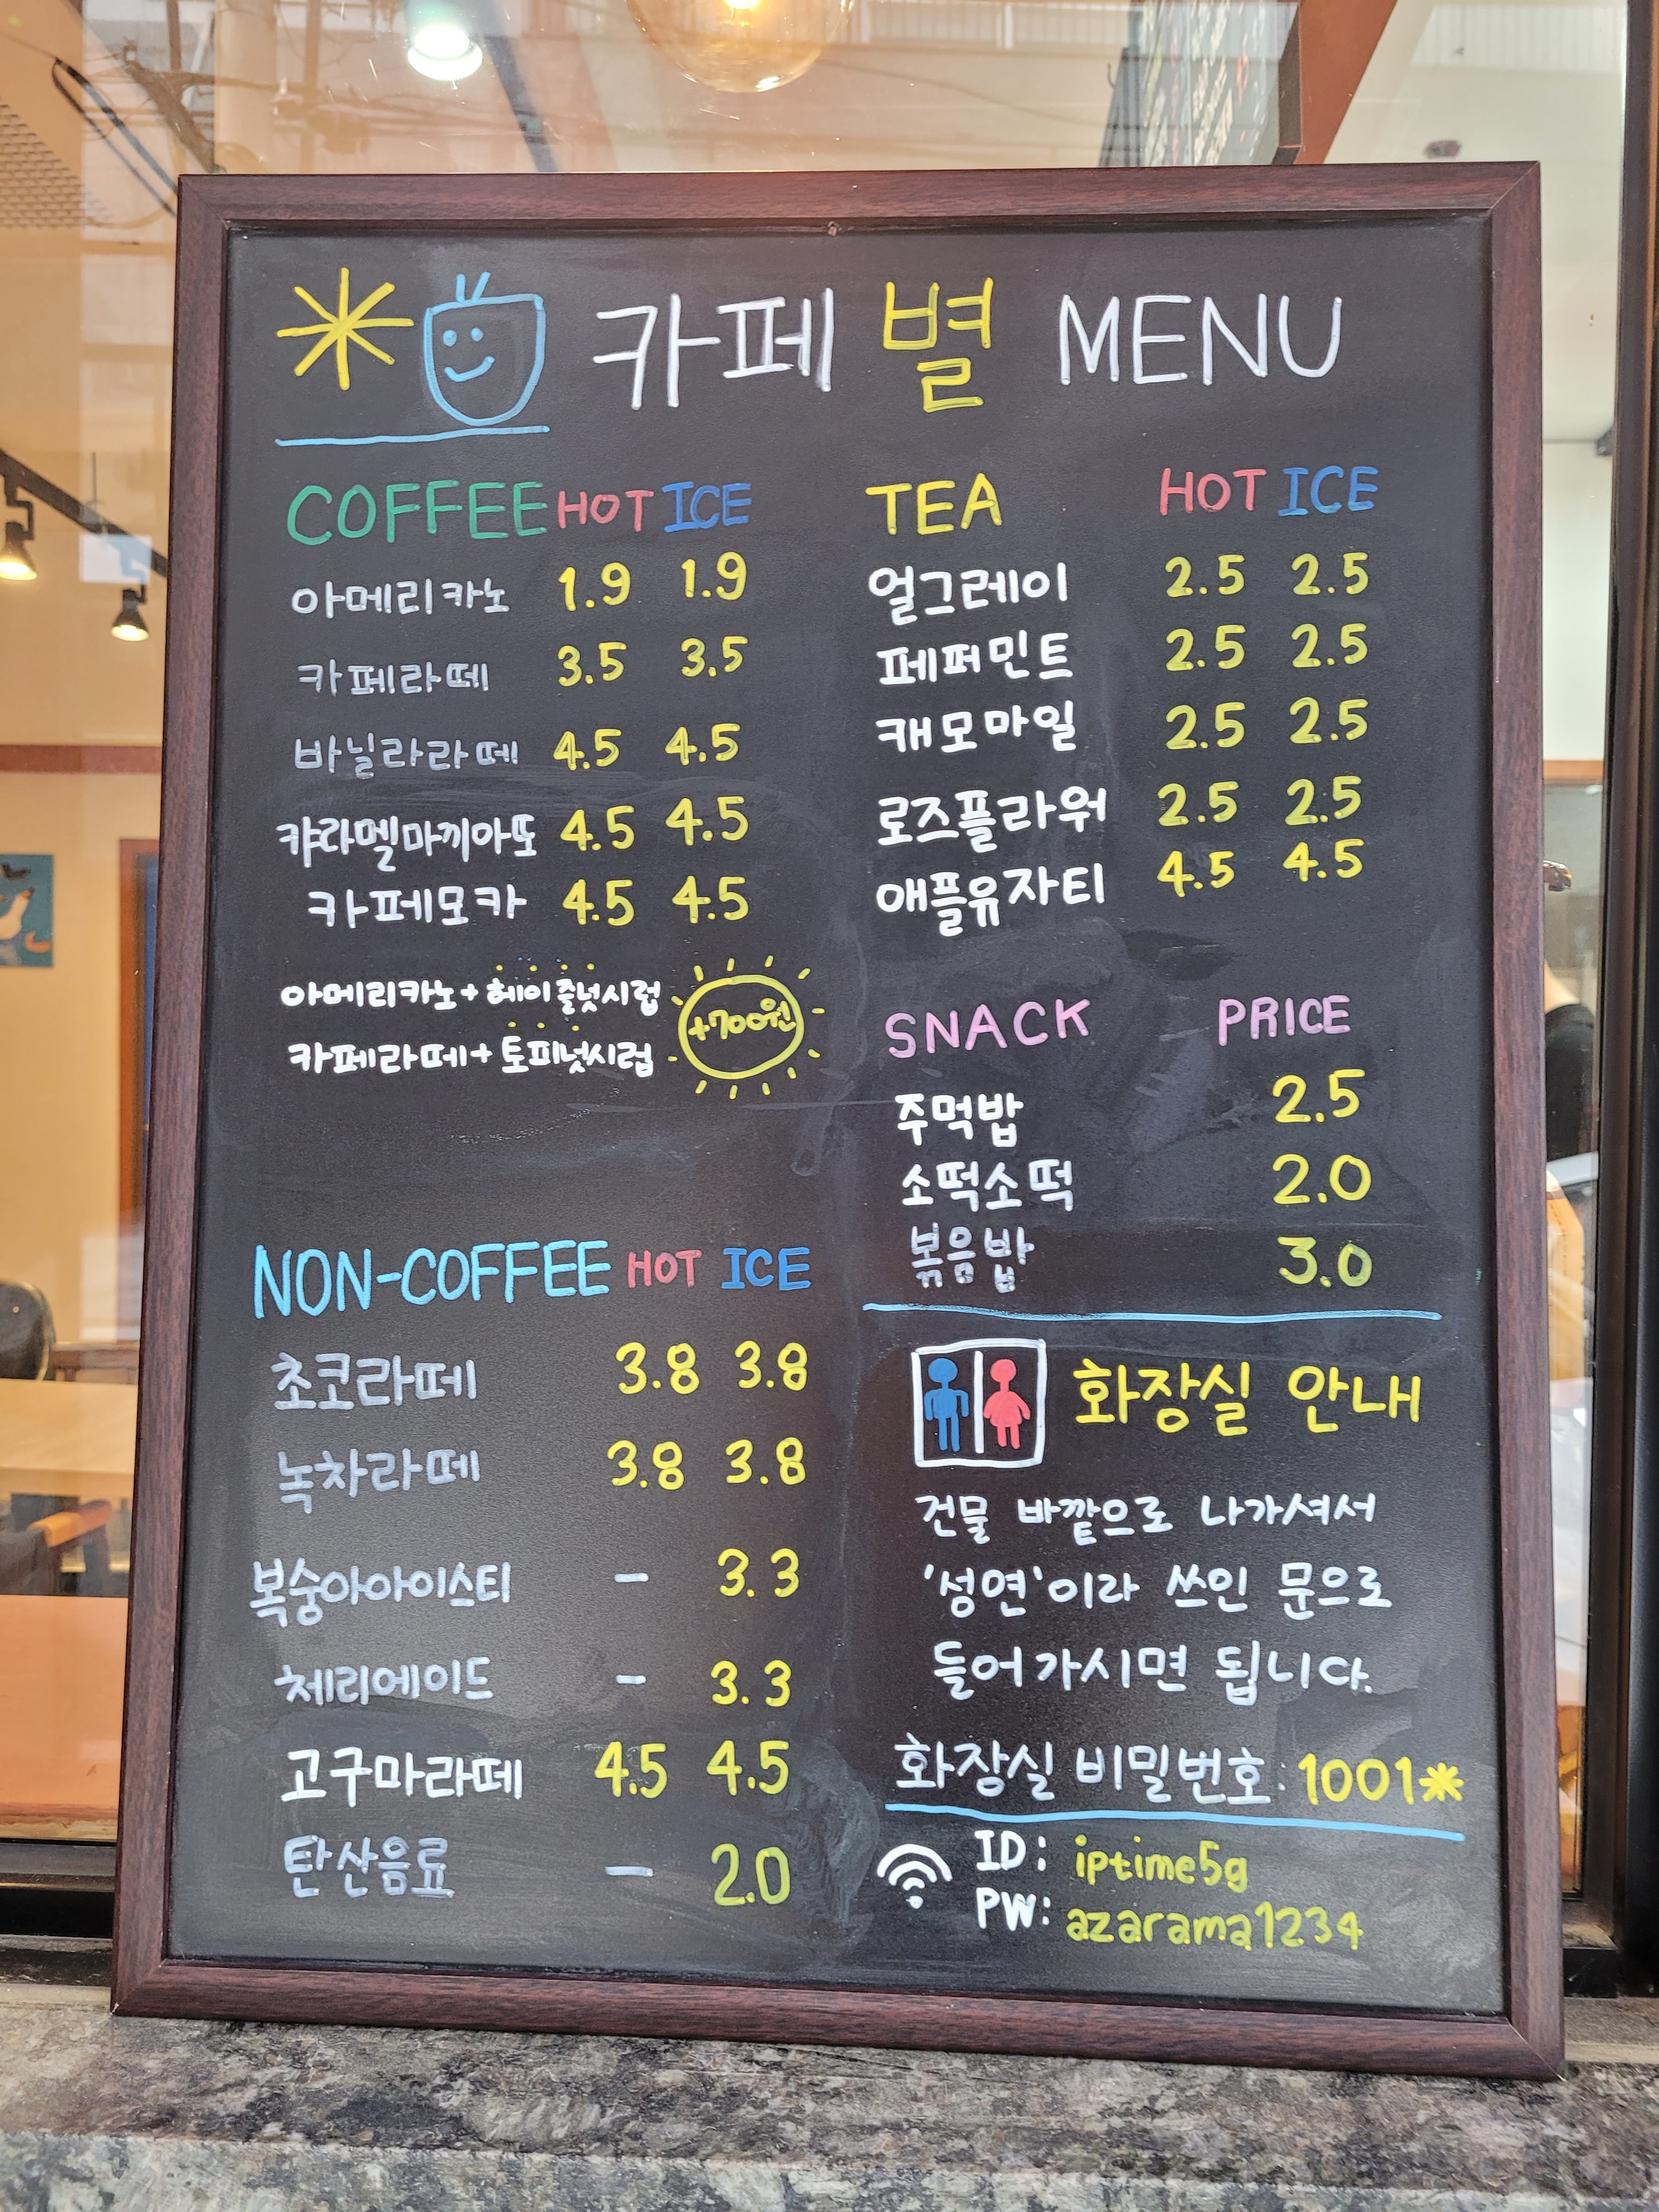 카페 별 MENU
COFFEE HOT ICE
아메리카노 1.9 1.9
카페라떼 3.5 3.5
바닐라라떼 4.5 4.5
캬라멜마끼아또 4.5 4.5
카페모카 4.5 4.5
아메리카노+헤이즐넛시럽
카페라떼+토피넛시럽
+700원
NON-COFFEE HOT ICE
초코라떼 3.8 3.8
녹차라떼 3.8 3.8
복숭아아이스티 - 3.3
체리에이드 - 3.3
고구마라떼 4.5 4.5
탄산음료 - 2.0
TEA HOT ICE
얼그레이 2.5 2.5
페퍼민트 2.5 2.5
캐모마일 2.5 2.5
로즈플라워 2.5 2.5
애플유자티 4.5 4.5
SNACK PRICE
주먹밥 2.5
소떡소떡 2.0
볶음밥 3.0
화장실 안내
건물 바깥으로 나가셔서
'성연'이라 쓰인 문으로
들어가시면 됩니다.
화장실 비밀번호: 1001*
ID: iptime5g
PW: azarama1234